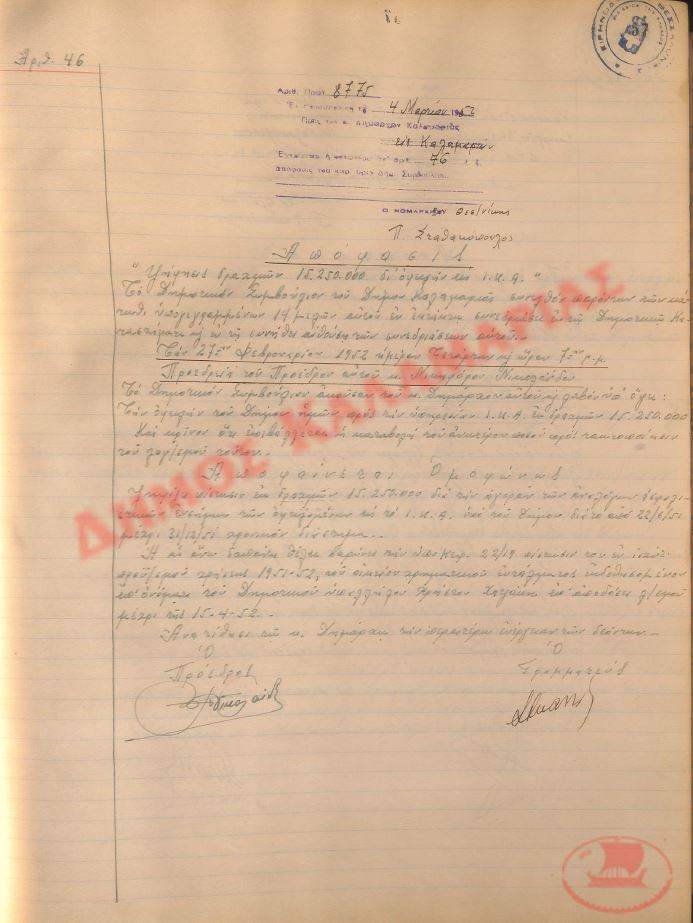 Ἀριθ. 46
Ἀριθ. Πρωτ. 8775
Ἐν Θεσσαλονίκῃ τῇ 4 Μαρτίου 1952
Πρὸς τὸν κ. Δήμαρχον Καλαμαριᾶς
εἰς Καλαμαριάν
Ἐγκρίνεται ἡ ὑπ' ἀριθ. 76
ἀπόφασις τοῦ Δημ. Συμβουλίου
Ο ΝΟΜΑΡΧΗΣ Θεσ/νίκης
Π. Σταθακόπουλος
Ἀπόφασις
"Ψήφισις δραχμῶν 15.250.000 δι' ὀφειλὴν εἰς Ι.Κ.Α."
Τὸ Δημοτικὸν Συμβούλιον τοῦ Δήμου Καλαμαριᾶς συνελθὸν παρόντων τῶν κά-
τωθι ὑπογεγραμμένων 14 μελῶν αὐτοῦ ἐν ἐκτάκτῳ συνεδριάσει ἐν τῷ Δημοτικῷ Κα-
ταστήματι καὶ ἐν τῇ συνήθει αἰθούσῃ τῶν συνεδριάσεων αὐτοῦ..
Τὴν 27ην Φεβρουαρίου 1952 ἡμέραν Τετάρτην καὶ ὥραν 7ην μ.μ.
Προεδρίᾳ τοῦ Προέδρου αὐτοῦ κ. Νικηφόρου Νικολαΐδου
Τὸ Δημοτικὸν Συμβούλιον ἀκοῦσαν τοῦ κ. Δημάρχου αὐτοῦ καὶ λαβὸν ὑπ' ὄψει:
Τὴν ὀφειλὴν τοῦ Δήμου ἡμῶν πρὸς τὴν ὑπηρεσίαν Ι.Κ.Α. ἐκ δραχμῶν 15.250.000
Καὶ κρῖνον ὅτι ἐπιβάλλεται ἡ καταβολὴ τοῦ ἀνωτέρου ποσοῦ πρὸς τακτοποίησιν
τοῦ λογ/σμοῦ τούτου..
Ἀποφαίνεται Ὁμοφώνως
Ψηφίζει πίστωσιν ἐκ δραχμῶν 15.250.000 διὰ τὴν ἀγορὰν τῶν ἀναλόγων ἀσφαλι-
στικῶν ἐνσήμων τῶν ὀφειλομένων εἰς τὸ Ι.Κ.Α. ὑπὸ τοῦ Δήμου διὰ τὸ ἀπὸ 22/6/51
μέχρι 31/12/51 χρονικὸν διάστημα..
Ἡ ὡς ἄνω δαπάνη θέλει βαρύνει τὴν ὑπὸ Κεφ. 22/19 πίστωσιν τοῦ ἐν ἰσχύει
προϋ/σμοῦ χρήσεως 1951-52, τοῦ οἰκείου χρηματικοῦ ἐντάλματος ἐκδοθησομένου
ἐπ' ὀνόματι τοῦ Δημοτικοῦ ὑπαλλήλου Χρήστου ἐπ' ἀποδόσει λ/σμοῦ
μέχρι τῆς 15-4-52..
Ἀνατίθησι τῷ κ. Δημάρχῳ τὴν περαιτέρω ἐνέργειαν τῶν δεόντων..
Ὁ Ὁ
Πρόεδρος Γραμματεύς
ΔΗΜΟΣ ΚΑΛΑΜΑΡΙΑΣ